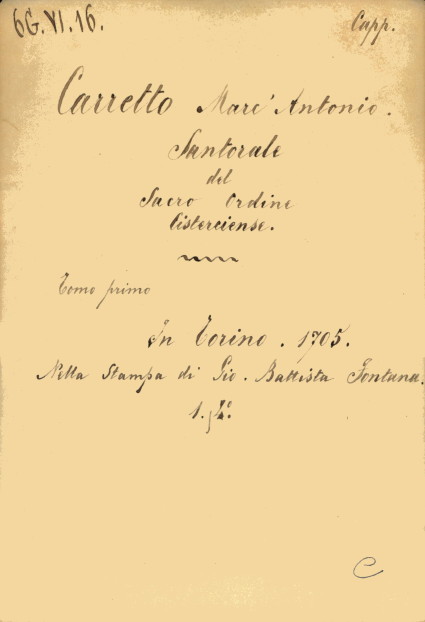 6G.VI.16.
Capp.
Carretto Marc' Antonio.
Santorale
del
Sacro Ordine
Cisterciense.
Tomo primo
In Torino. 1705.
Nella Stampa di Gio. Battista Fontana.
1. 4º
C